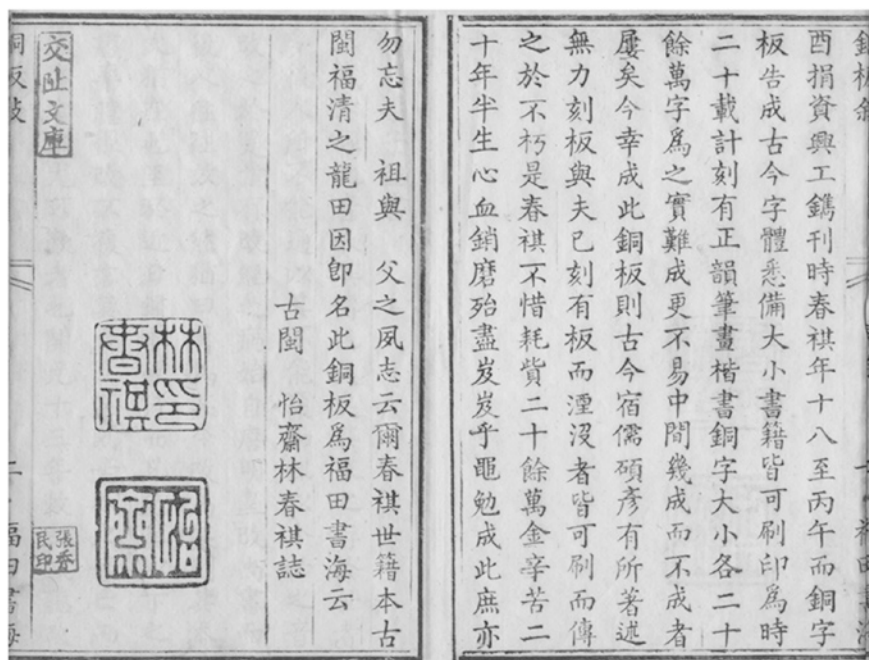 酉捐資興工鐫刊時春祺年十八至丙午而銅字
板告成古今字體悉備大小書籍皆可刷印為時
二十載計刻有正韻筆畫楷書銅字大小各二十
餘萬字爲之實難成更不易中間幾成而不成者
屢矣今幸成此銅板則古今宿儒碩彥有所著述
無力刻板與夫已刻有板而湮沒者皆可刷而傳
之於不朽是春祺不惜耗貲二十餘萬金辛苦二
十年半生心血銷磨殆盡岌岌乎黽勉成此庶亦
勿忘夫 祖與 父之夙志云爾春祺世籍本古
閩福清之龍田因卽名此銅板爲福田書海云
古閩 怡齋林春祺誌
林印春祺
怡齋
交阯文庫
張秀民印
福田書海